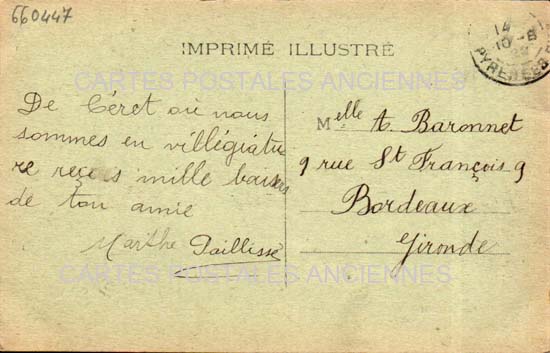 660447
IMPRIMÉ ILLUSTRÉ
14
10-8
PYRENEES
CARTES POSTALES ANCIENNES
De Céret où nous
sommes en villégiatu
re reçois mille baisers
de ton amie
Marthe Paillissé
Melle A. Baronnet
9 rue St François 9
Bordeaux
Gironde
CARTES POSTALES ANCIENNES